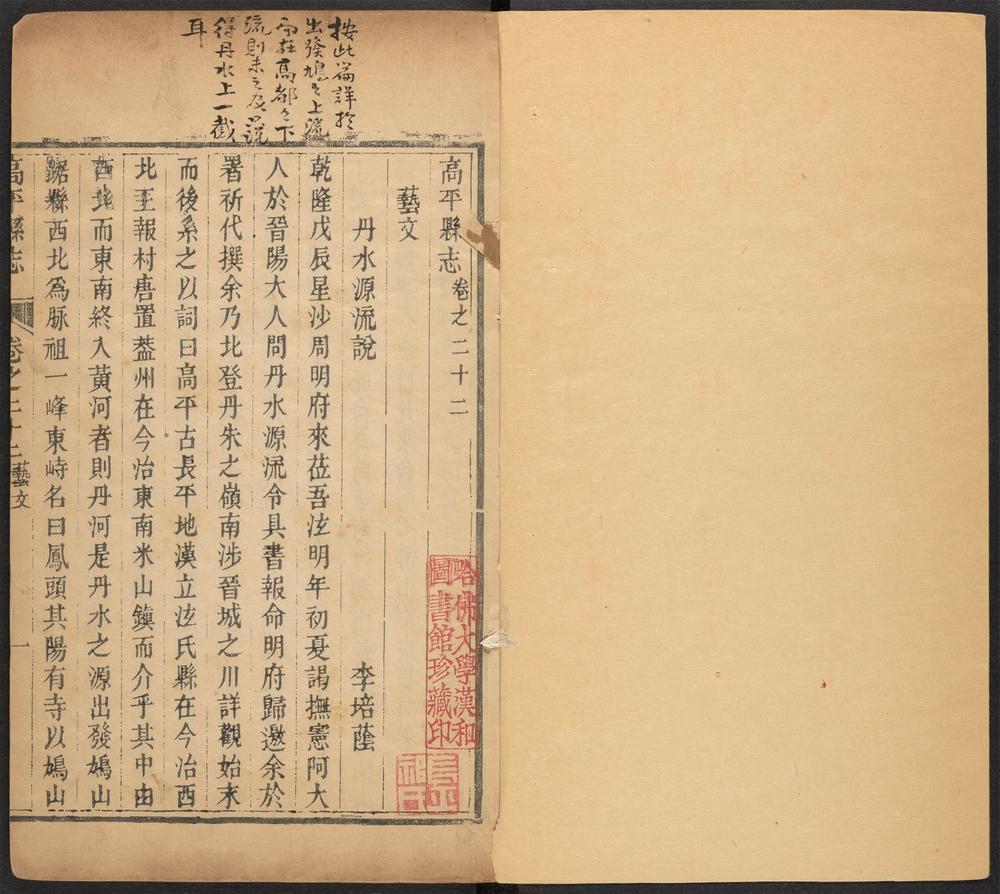 按此篇詳於
出發鳩之上流
而在高都之下
流則未之及只說
得丹水上一截
耳
高平縣志卷之二十二
藝文
丹水源流說 李培蔭
乾隆戊辰星沙周明府來莅吾泫明年初夏謁撫憲阿大
人於晉陽大人問丹水源流令具書報命明府歸邀余於
署祈代撰余乃北登丹朱之嶺南涉晉城之川詳觀始末
而後系之以詞曰高平古長平地漢立泫氏縣在今治西
北王報村唐置蓋州在今治東南米山鎮而介乎其中由
西北而東南終入黃河者則丹河是丹水之源出發鳩山
踞縣西北為脉祖一峰東峙名曰鳳頭其陽有寺以鳩山
高平縣志 卷之二十二 藝文 一
哈佛大學漢和
圖書館珍藏印